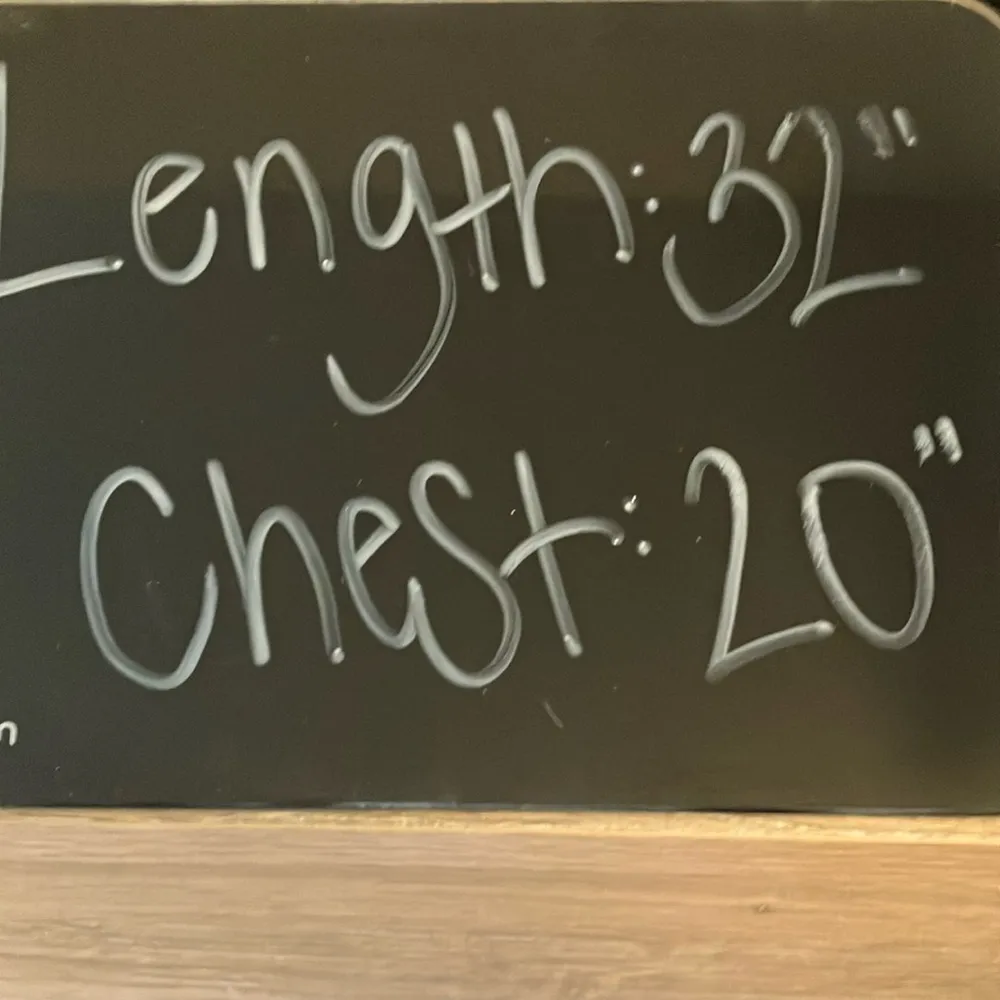 Length: 32"
Chest: 20"